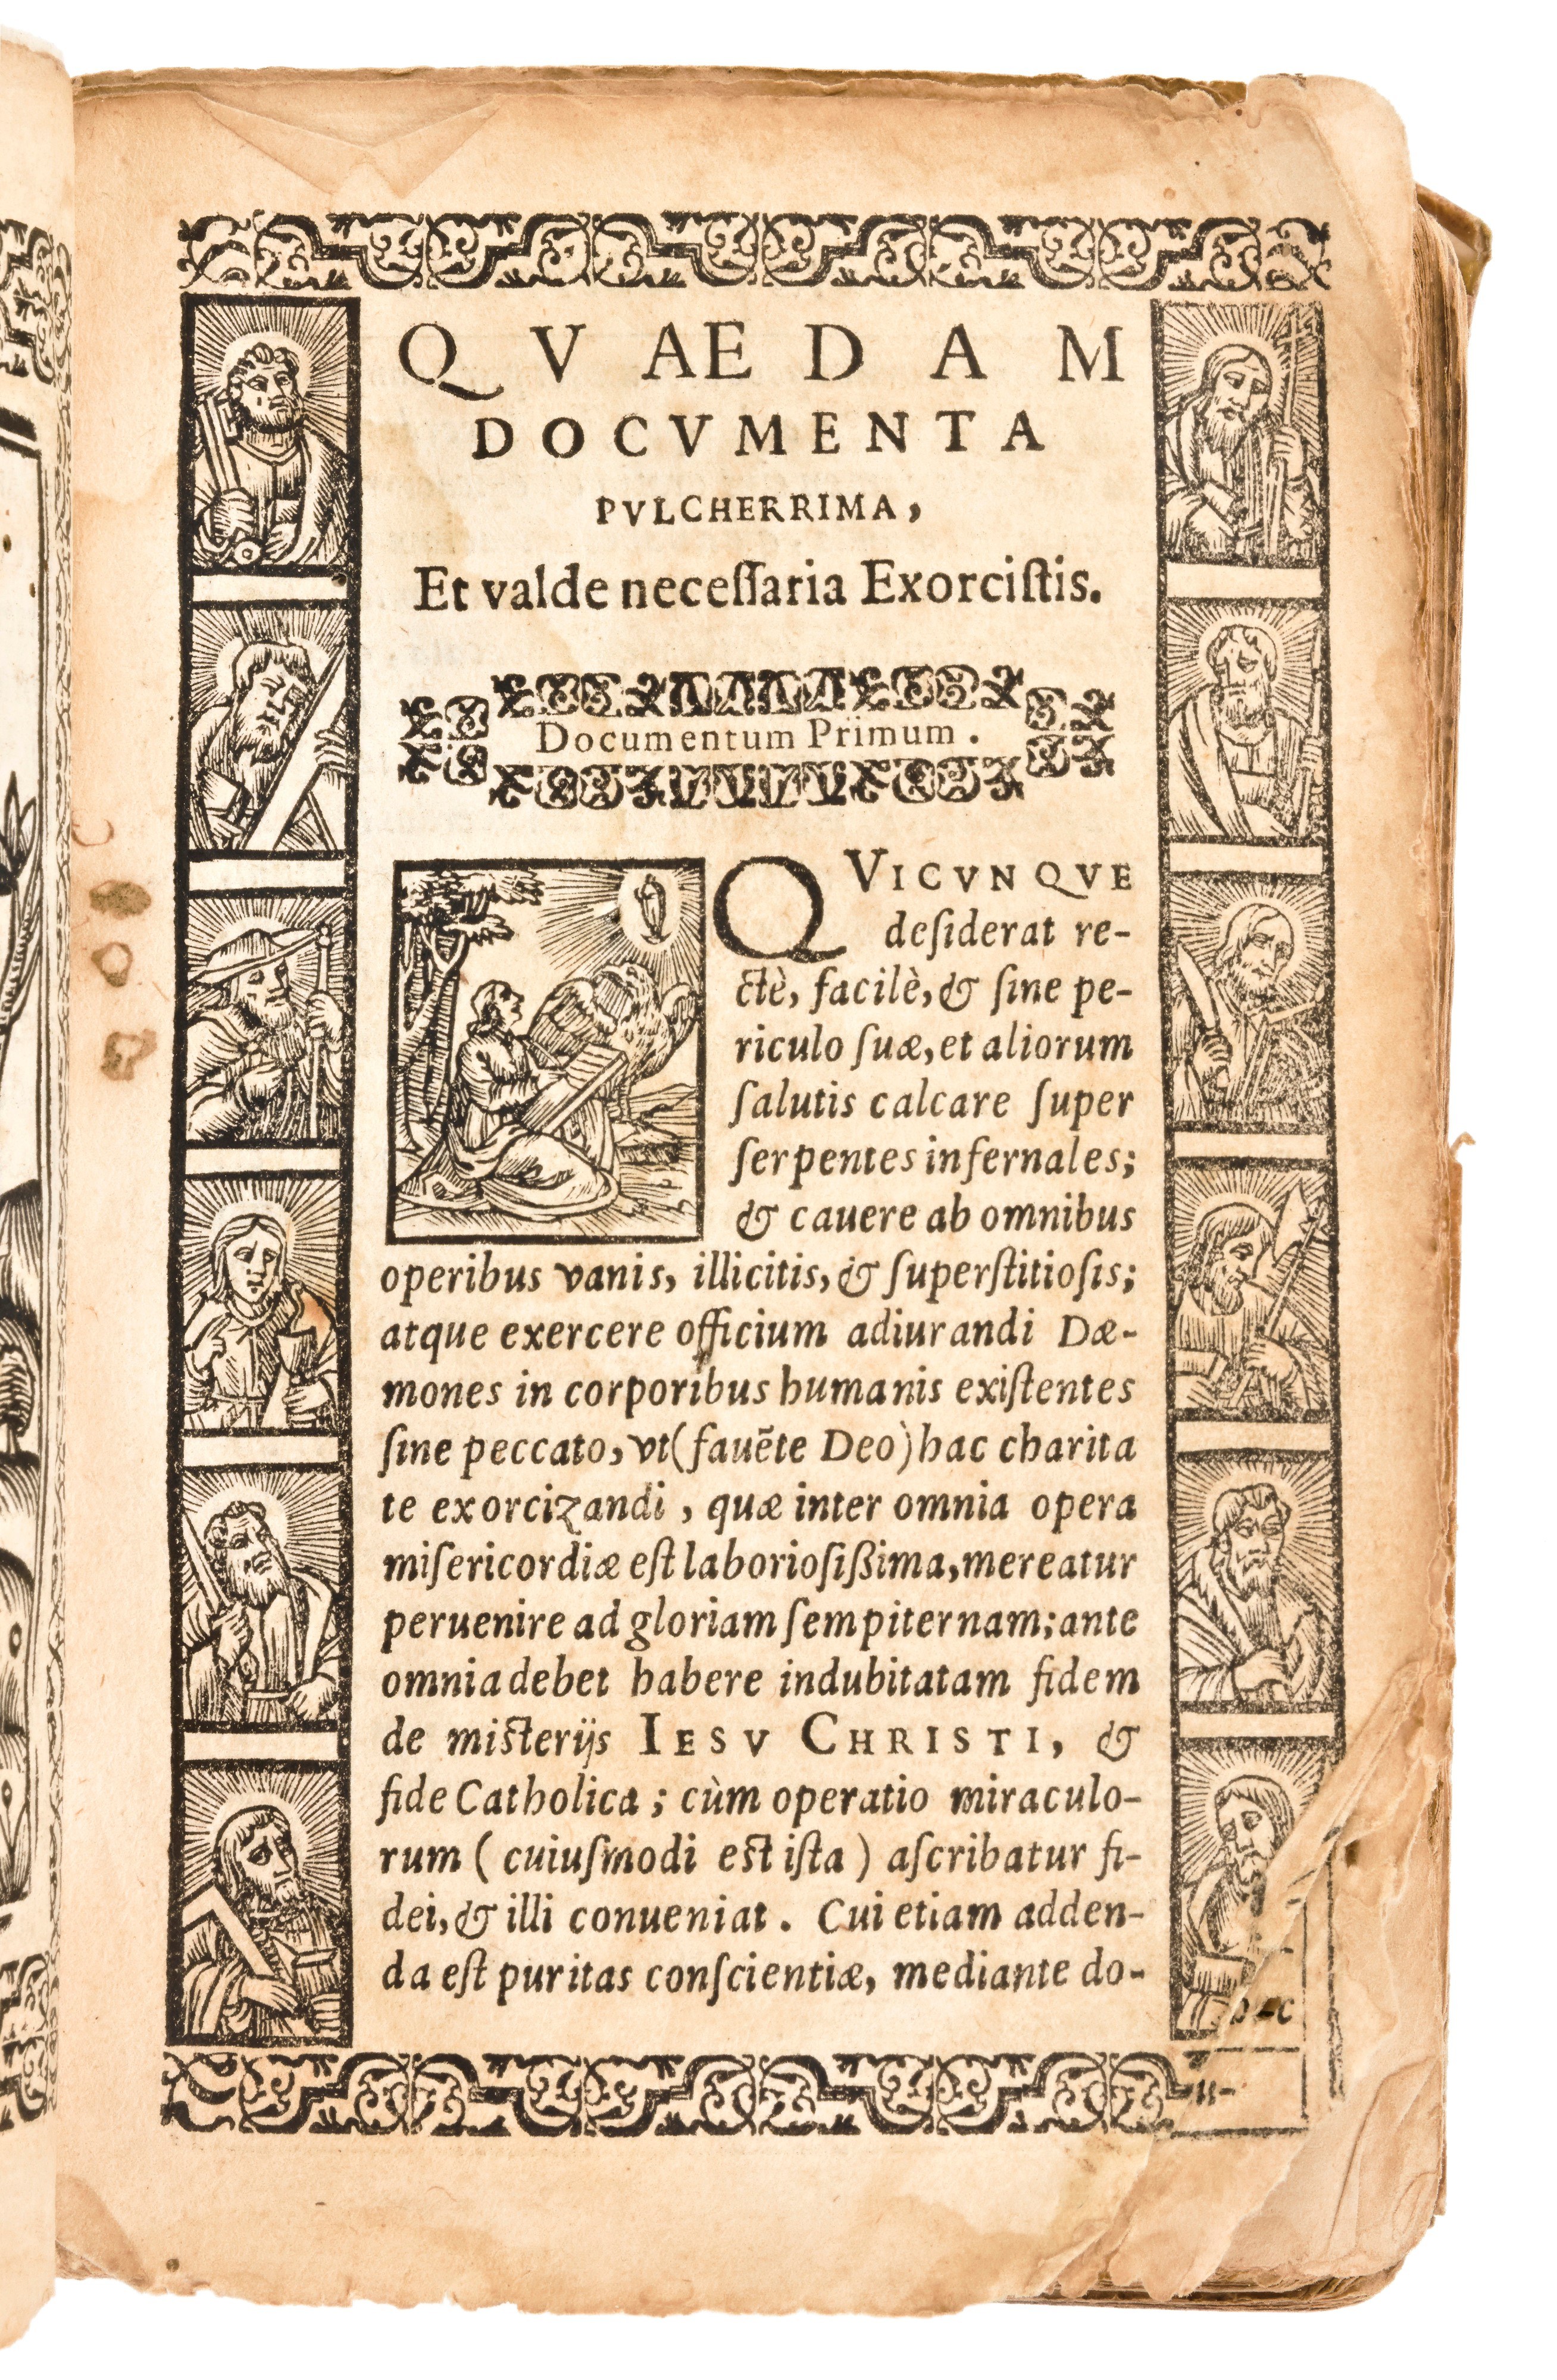 QVAEDAM
DOCVMENTA
PVLCHERRIMA,
Et valde neceſſaria Exorciſtis.
Documentum Primum.
QVICVNQVE
deſiderat re-
ctè, facilè, & ſine pe-
riculo ſuæ, et aliorum
ſalutis calcare ſuper
ſerpentes infernales;
& cauere ab omnibus
operibus vanis, illicitis, & ſuperſtitioſis;
atque exercere officium adiurandi Dæ-
mones in corporibus humanis exiſtentes
ſine peccato, vt (fauẽte Deo) hac charita
te exorcizandi, quæ inter omnia opera
miſericordiæ eſt laborioſißima, mereatur
peruenire ad gloriam ſempiternam; ante
omnia debet habere indubitatam fidem
de miſterijs IESV CHRISTI, &
fide Catholica; cùm operatio miraculo-
rum (cuiuſmodi eſt iſta) aſcribatur fi-
dei, & illi conueniat. Cui etiam adden-
da eſt puritas conſcientiæ, mediante do-